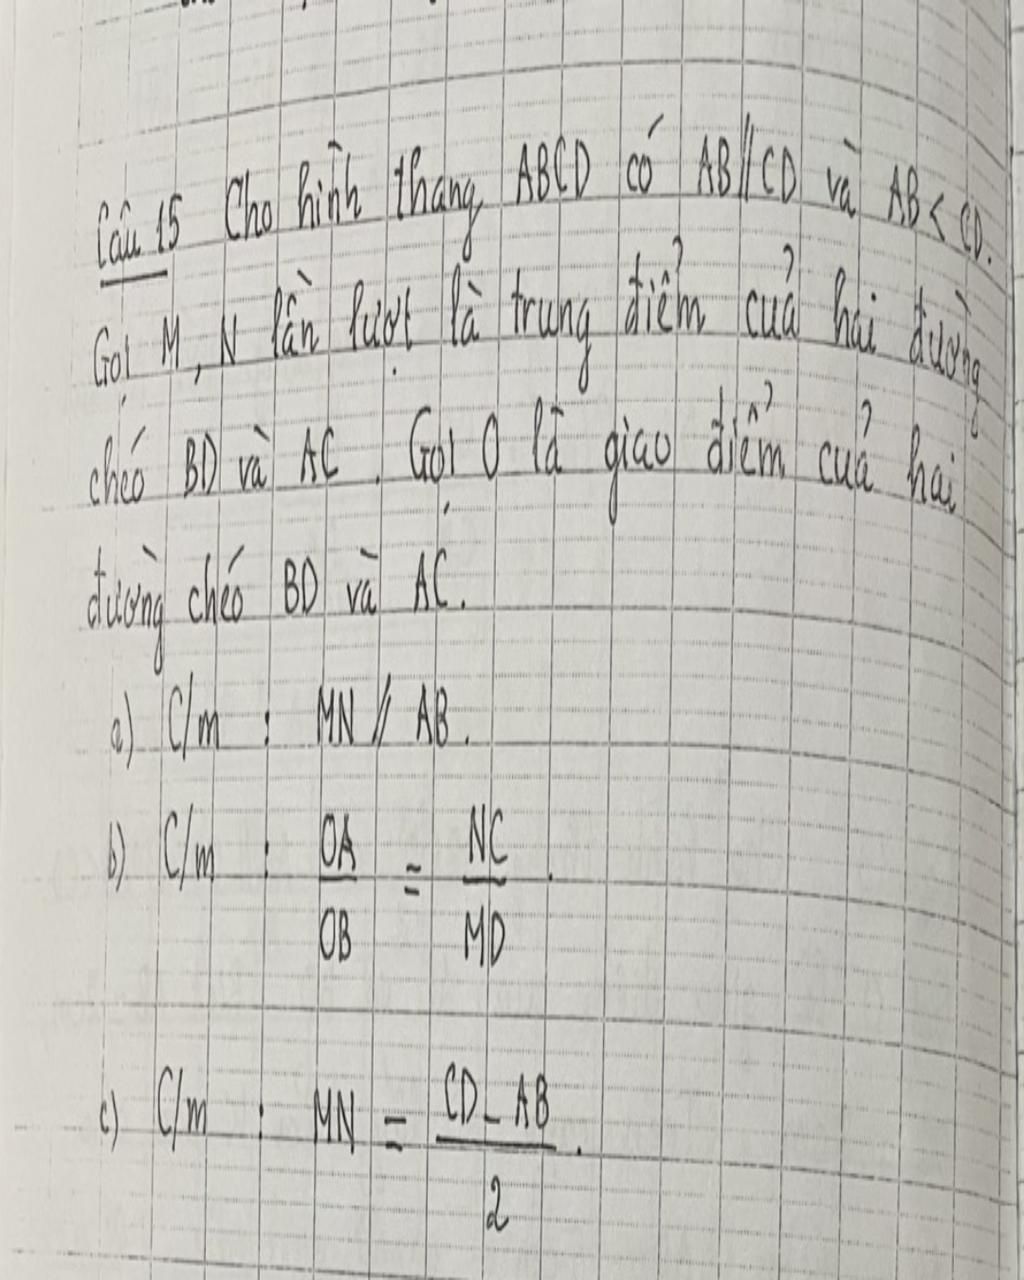 Câu 15 Cho hình thang ABCD có AB // CD và AB < CD.
Gọi M, N lần lượt là trung điểm của hai đường
chéo BD và AC. Gọi O là giao điểm của hai
đường chéo BD và AC.
a) C/m : MN // AB.
b) C/m : OA/OB = NC/MD.
c) C/m : MN = CD - AB / 2.